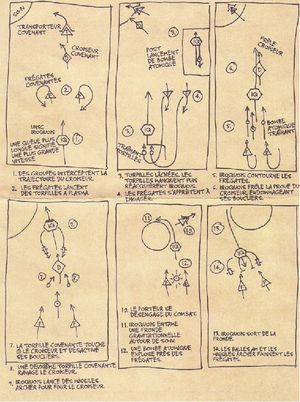 SOL IV
TRANSPORTEUR
COVENANT
CROISEUR
COVENANT
FRÉGATES
COVENANTES
UNSC
IROQUOIS
UNE QUEUE PLUS
LONGUE SIGNIFIE
UNE PLUS GRANDE
VITESSE
1.
2.
1. DES GROUPES INTERCEPTENT LA
TRAJECTOIRE DU CROISEUR.
2. LES FRÉGATES LANCENT
DES TORPILLES À PLASMA
3.
POST
LANCEMENT
DE BOMBE
ATOMIQUE
4.
TRAÎNANTES
TORPILLES
3. TORPILLES LÂCHÉES. LES
TORPILLES MANQUENT PUIS
RÉACQUIÈRENT IROQUOIS.
4. LES FRÉGATES S'APPRÊTENT À
ENGAGER.
FRÔLE
CROISEUR
6.
5.
BOMBE
ATOMIQUE
TRAÎNANT
5. IROQUOIS CONTOURNE LES
FRÉGATES.
6. IROQUOIS FRÔLE LA PROUE DU
CROISEUR, ENDOMMAGEANT
SES BOUCLIERS.
7.
8.
9.
7. LA TORPILLE COVENANTE TOUCHE
LE CROISEUR ET DÉSACTIVE
SES BOUCLIERS.
8. UNE DEUXIÈME TORPILLE COVENANTE
RAVAGE LE CROISEUR.
9. IROQUOIS LANCE DES MISSILES
ARCHER POUR FINIR LE CROISEUR.
11.
10.
12.
10. LE PORTEUR SE
DÉSENGAGE DU COMBAT.
11. IROQUOIS ENTAME
UNE FRONDE
GRAVITATIONNELLE
AUTOUR DE SOL IV
12. UNE BOMBE ATOMIQUE
EXPLOSE PRÈS DES
FRÉGATES.
13.
14.
13. IROQUOIS SORT DE LA
FRONDE.
14. LES BALLES AM ET LES
MISSILES ARCHER FINISSENT LES
FRÉGATES.